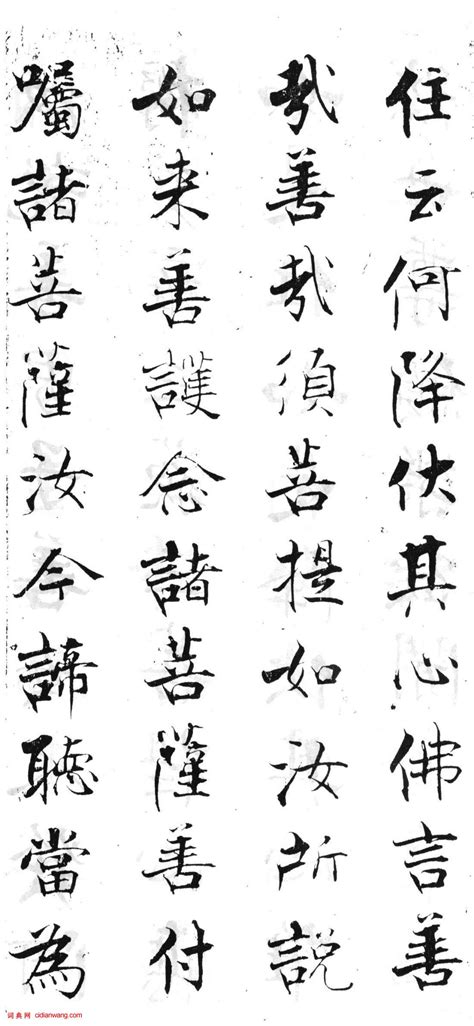 住云何降伏其心佛言善
哉善哉須菩提如汝所說
如来善護念諸菩薩善付
囑諸菩薩汝今諦聽當為
词典网 cidianwang.com